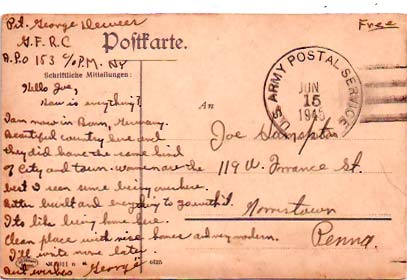 Pvt. George
G.F.R.C
A.P.O 153 c/o P.M. NY
Free
Postkarte.
Schriftliche Mitteilungen:
An
U.S. ARMY POSTAL SERVICE
JUN
15
1945
Hello Joe,
How is everything?
I am now in Bonn, Germany.
Beautiful country here and
they did have the same kind
of City and town.
but I seen some being
Better built and everything to go with it.
Its like being home here.
Clean place with nice homes and very modern.
I'll write more later.
Best wishes George
Joe
119 W. St.
Norristown
Penna.